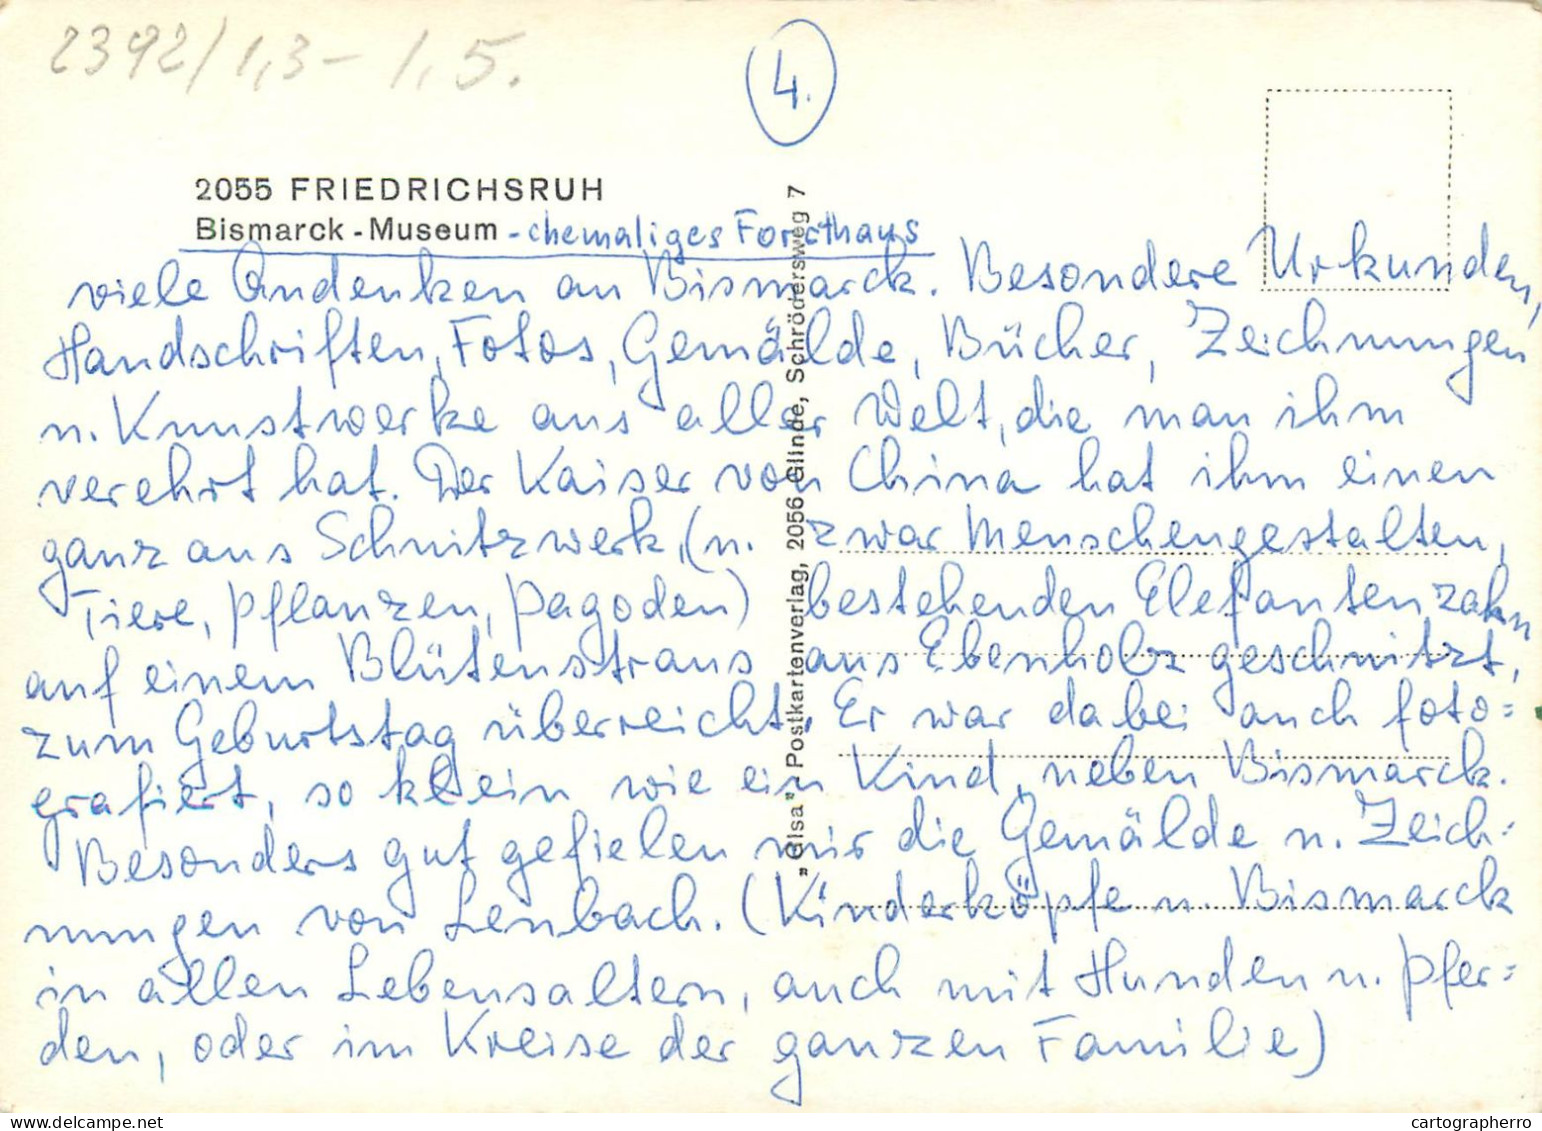 2392/1,3 – 1,5.
4.
2055 FRIEDRICHSRUH
Bismarck - Museum - ehemaliges Forsthaus
viele Andenken an Bismarck. Besondere Urkunden,
Handschriften, Fotos, Gemälde, Bücher, Zeichnungen
u. Kunstwerke aus aller Welt, die man ihm
verehrt hat. Der Kaiser von China hat ihm einen
ganz aus Schnitzwerk, (u. zwar Menschengestalten,
Tiere, Pflanzen, Pagoden) bestehenden Elefantenzahn
auf einem Blütenstraus aus Ebenholz geschnitzt,
zum Geburtstag überreicht. Er war dabei auch foto=
grafiert, so klein wie ein Kind, neben Bismarck.
Besonders gut gefielen mir die Gemälde u. Zeich=
nungen von Lenbach. (Kinderköpfe u. Bismarck
in allen Lebensaltern, auch mit Hunden u. Pfer=
den, oder im Kreise der ganzen Familie)
„Gilsa“ Postkartenverlag, 2056 Glinde, Schrödersweg 7
cartographerro